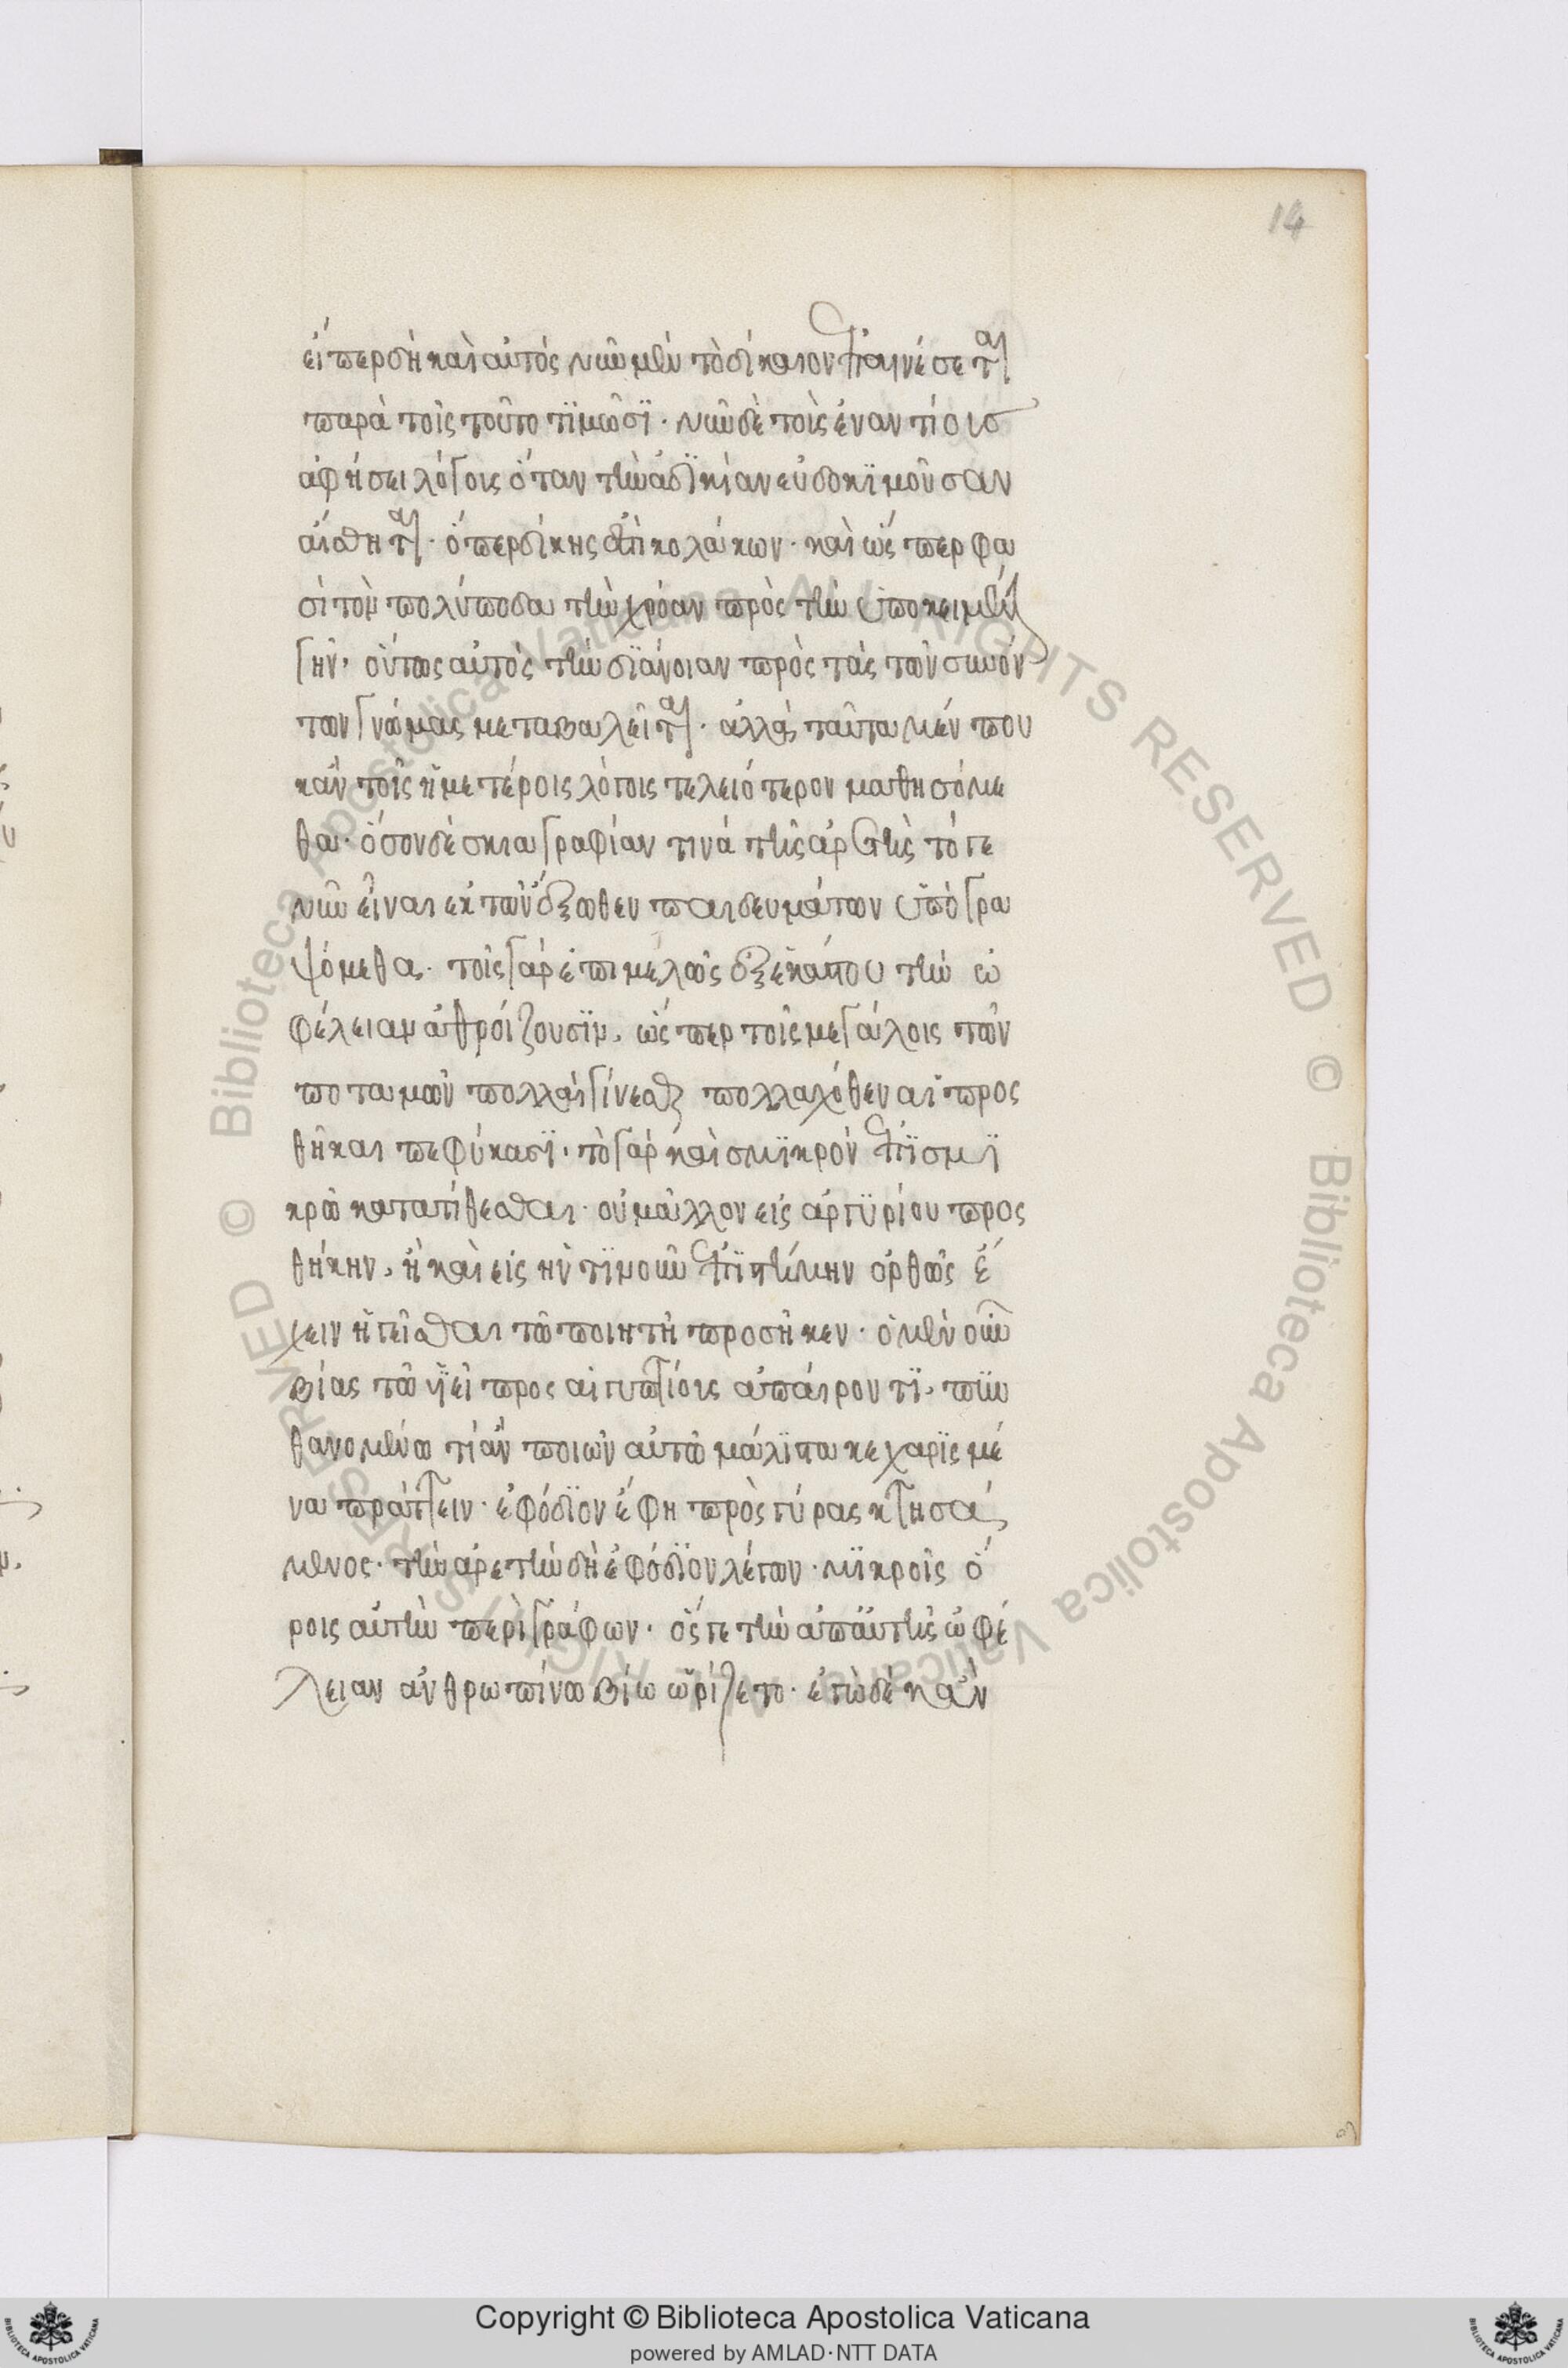 14
εἴπερ δὴ καὶ αὐτὸς νῦν μὲν τὸ δίκαιον ἐπαινέσεται
παρὰ τοῖς τοῦτο τϊμῶσϊ· νῦν δὲ τοὺς ἐναντίους
ἀφήσει λόγοις ὅταν τὴν ἀδϊκίαν εὐδοκϊμοῦσαν
αἴσθηται· ὅπερ δίκης ἐστὶ κολάκων· καὶ ὥσπερ φα
σὶ τὸν πολύποδα τὴν χρόαν πρὸς τὴν ὑποκειμένην
γῆν, οὕτως αὐτὸς τὴν δϊάνοιαν πρὸς τὰς τῶν συνόν
των γνώμας μεταβαλεῖται· ἀλλὰ ταῦτα μέν που
κἀν τοῖς ἡμετέροις λόγοις τελειότερον μαθησόμε
θα· ὅσον δὲ σκιαγραφίαν τινὰ τῆς ἀρετῆς τό γε
νῦν εἶναι ἐκ τῶν ἔξωθεν παιδευμάτων ὑπογρα
ψόμεθα. τοῖς γὰρ ἐπιμελῶς ἐξ ἑκάστου τὴν ὠ
φέλειαν ἀθροίζουσϊν, ὥσπερ τοῖς μεγάλοις τῶν
ποταμῶν πολλαὶ γίνεσθαι πολλαχόθεν αἱ προς
θῆκαι πεφύκασϊ· τὸ γὰρ καὶ σμϊκρὸν ἐπὶ σμϊ
κρῶ κατατίθεσθαι· οὐ μᾶλλον εἰς ἀργϋρίου προς
θήκην, ἢ καὶ εἰς ἣν τϊνοῦν ἐπϊστήμην ὀρθῶς ἔ
χειν ἡγεῖσθαι τῶ ποιητῆ προσῆκεν· ὁ μὲν οὖν
βίας τῶ ϋἱεῖ προς αἰγυπτίους ἀπαίροντϊ, πϋν
θανομένω τί ἂν ποιῶν αὐτῶ μάλϊστα κεχαρϊσμέ
να πράττειν· ἐφόδϊον ἔφη πρὸς γῆρας κτησά
μενος· τὴν ἀρετὴν δὴ ἐφόδϊον λέγων· μϊκροῖς ὅ
ροις αὐτὴν περιγράφων· ὅς γε τὴν ἀπ᾽ αὐτῆς ὠφέ
λειαν ἀνθρωπίνω βίω ὡρίζετο· ἐγὼ δὲ κἂν
Copyright © Biblioteca Apostolica Vaticana
powered by AMLAD·NTT DATA